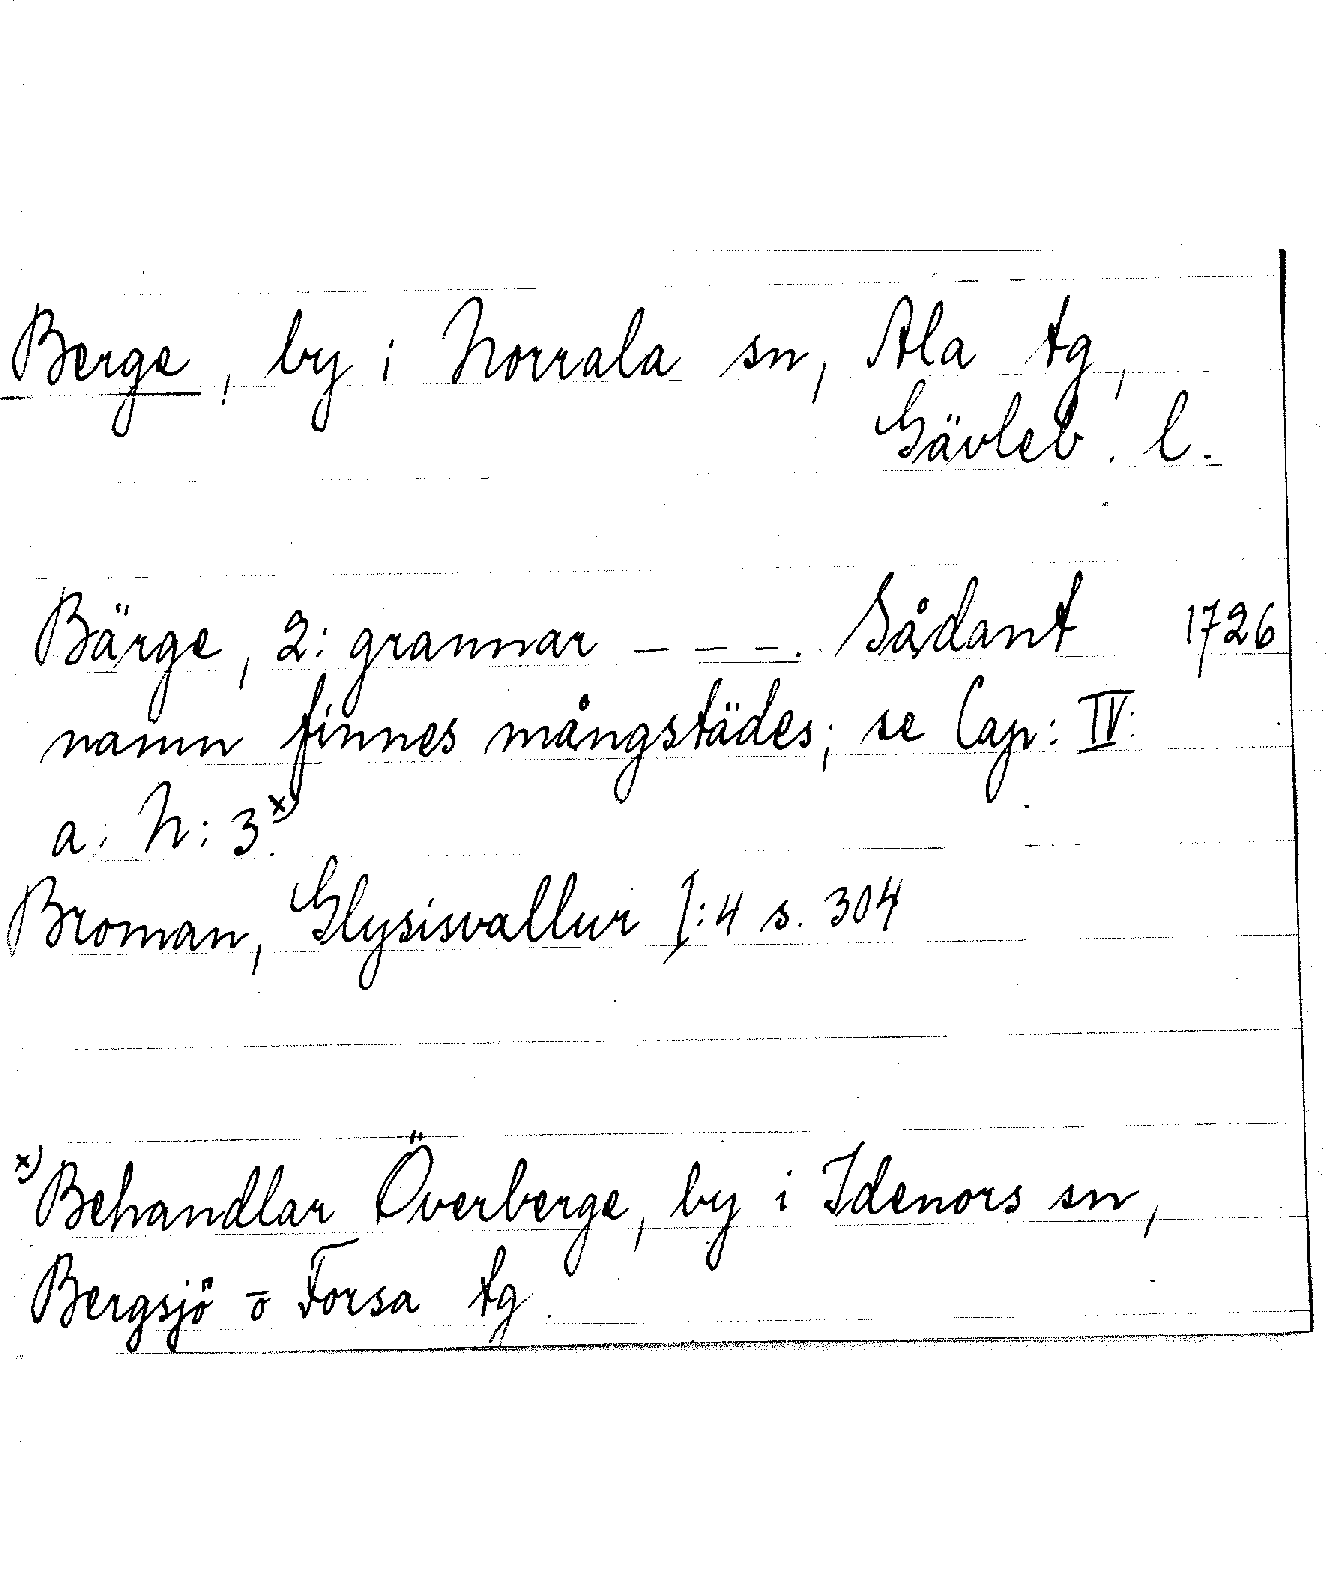 Berge, by i Norrala sn, Ala tg,
Gävleb. l.
Bärge, 2: grannar _ _ _ . Sådant 1726
namn finnes mångstädes; se Cap: IV:
a. N: 3.x)
Broman, Glysisvallur I:4 s. 304
x) Behandlar Överberge, by i Idenors sn,
Bergsjö o Forsa tg.